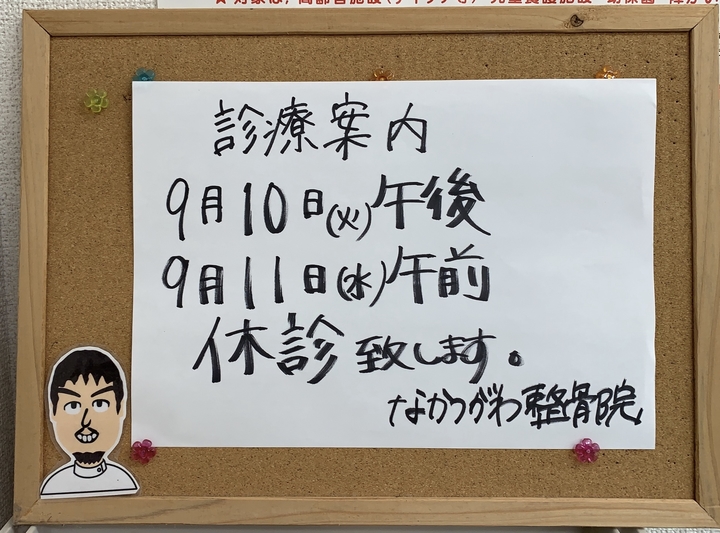 診療案内
9月10日(火)午後
9月11日(水)午前
休診致します。
なかつがわ整骨院